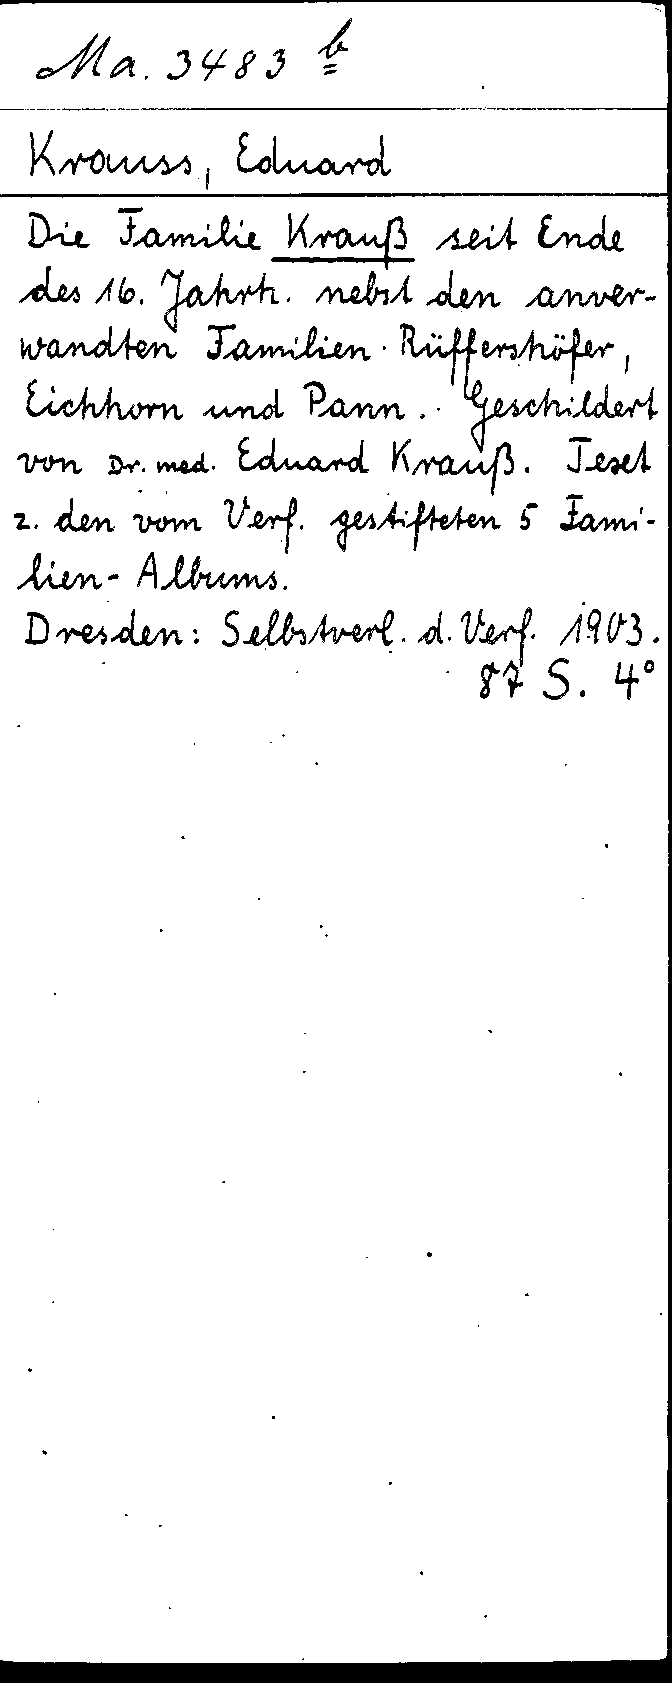 Ma. 3483 b
Krauss, Eduard
Die Familie Krauß seit Ende
des 16. Jahrh. nebst den anver-
wandten Familien Rüffershöfer,
Eichhorn und Pann. Geschildert
von Dr. med. Eduard Krauß. Text
z. den vom Verf. gestifteten 5 Fami-
lien-Albums.
Dresden: Selbstverl. d. Verf. 1903.
87 S. 4°